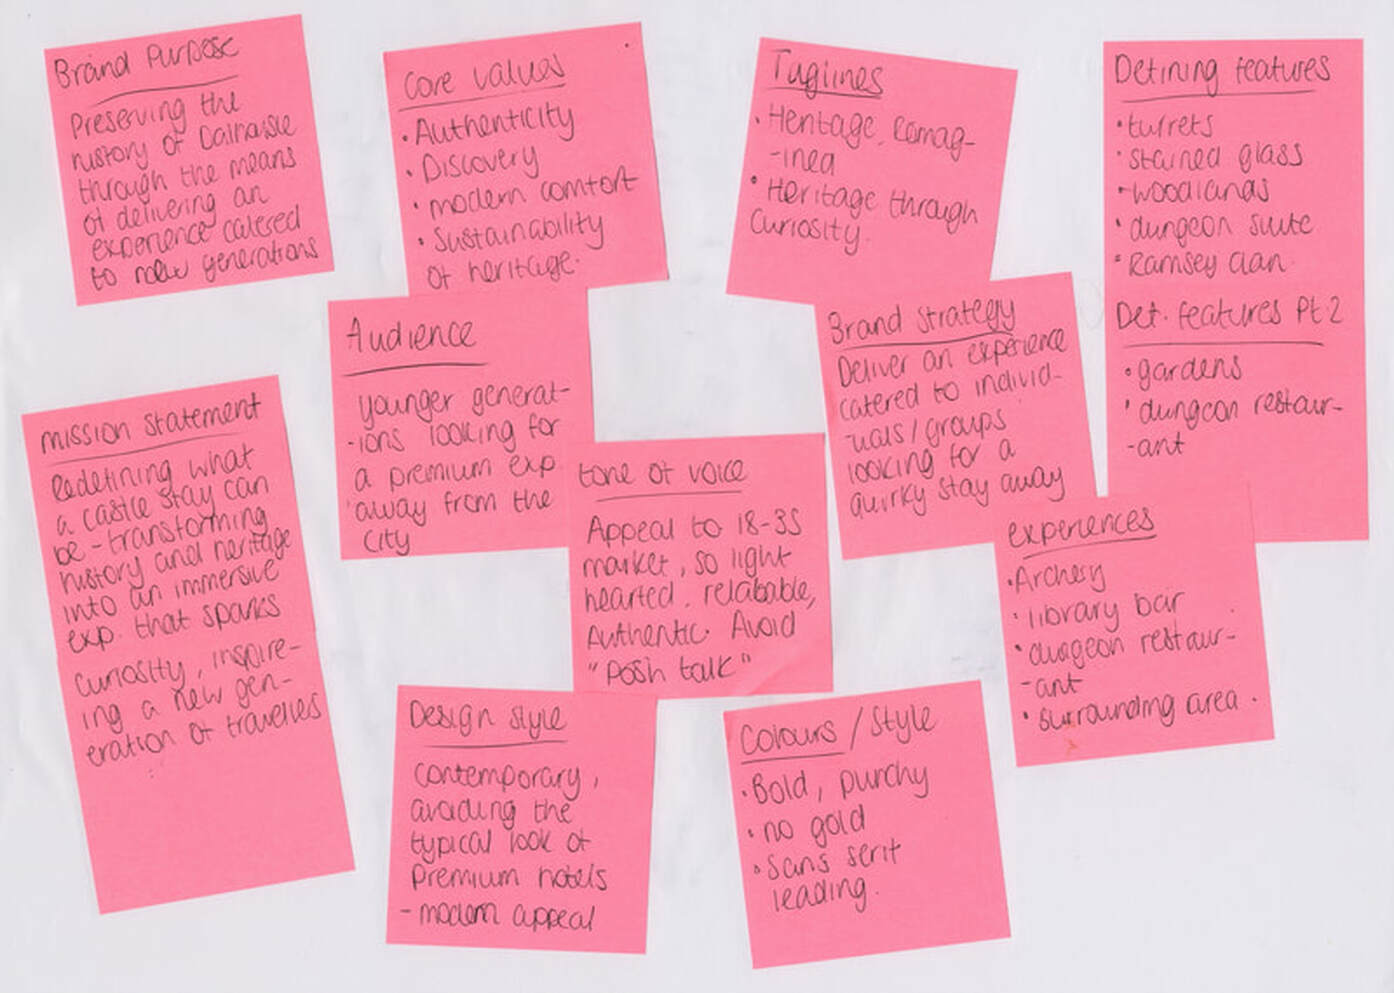 Brand Purpose
Preserving the
history of Dalhousie
through the means
of delivering an
experience catered
to new generations
Core values
• Authenticity
• Discovery
• modern comfort
• Sustainability
of heritage.
Taglines
• Heritage, Reimag-
-ined
• Heritage through
Curiosity.
Defining features
• turrets
• stained glass
• woodlands
• dungeon suite
• Ramsey clan.
Det. features Pt.2
• gardens
• dungeon restaur-
-ant
Audience
Younger generat-
-ions looking for
a premium exp.
away from the
city
Brand Strategy
Deliver an experience
catered to individ-
-uals / groups
looking for a
quirky stay away
mission statement
Redefining what
a castle stay can
be - transforming
history and heritage
into an immersive
exp. that sparks
curiosity, inspire-
ing a new gen-
eration of travellers
tone of voice
Appeal to 18-35
market, so light
hearted, relatable,
Authentic. Avoid
"Posh talk"
experiences
• Archery
• library bar
• dungeon restaur-
-ant
• surrounding area.
Design style
Contemporary,
avoiding the
typical look of
Premium hotels
- modern appeal
Colours / Style
• Bold, punchy
• no gold
• Sans serif
leading.